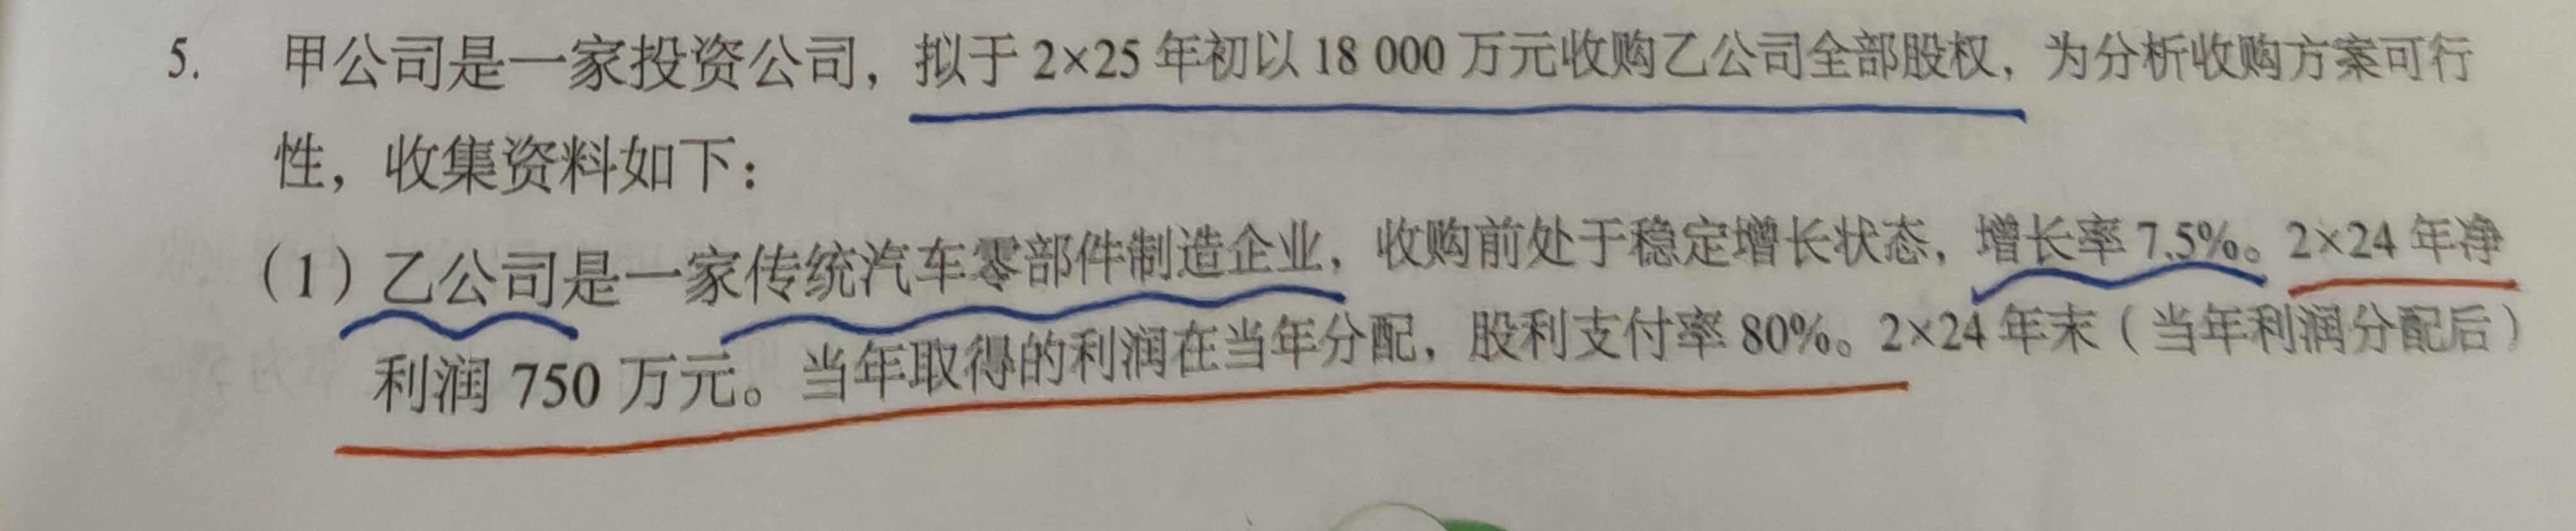 5. 甲公司是一家投资公司，拟于 2×25 年初以 18 000 万元收购乙公司全部股权，为分析收购方案可行
性，收集资料如下：
（1）乙公司是一家传统汽车零部件制造企业，收购前处于稳定增长状态，增长率 7.5%。2×24 年净
利润 750 万元。当年取得的利润在当年分配，股利支付率 80%。2×24 年末（当年利润分配后）